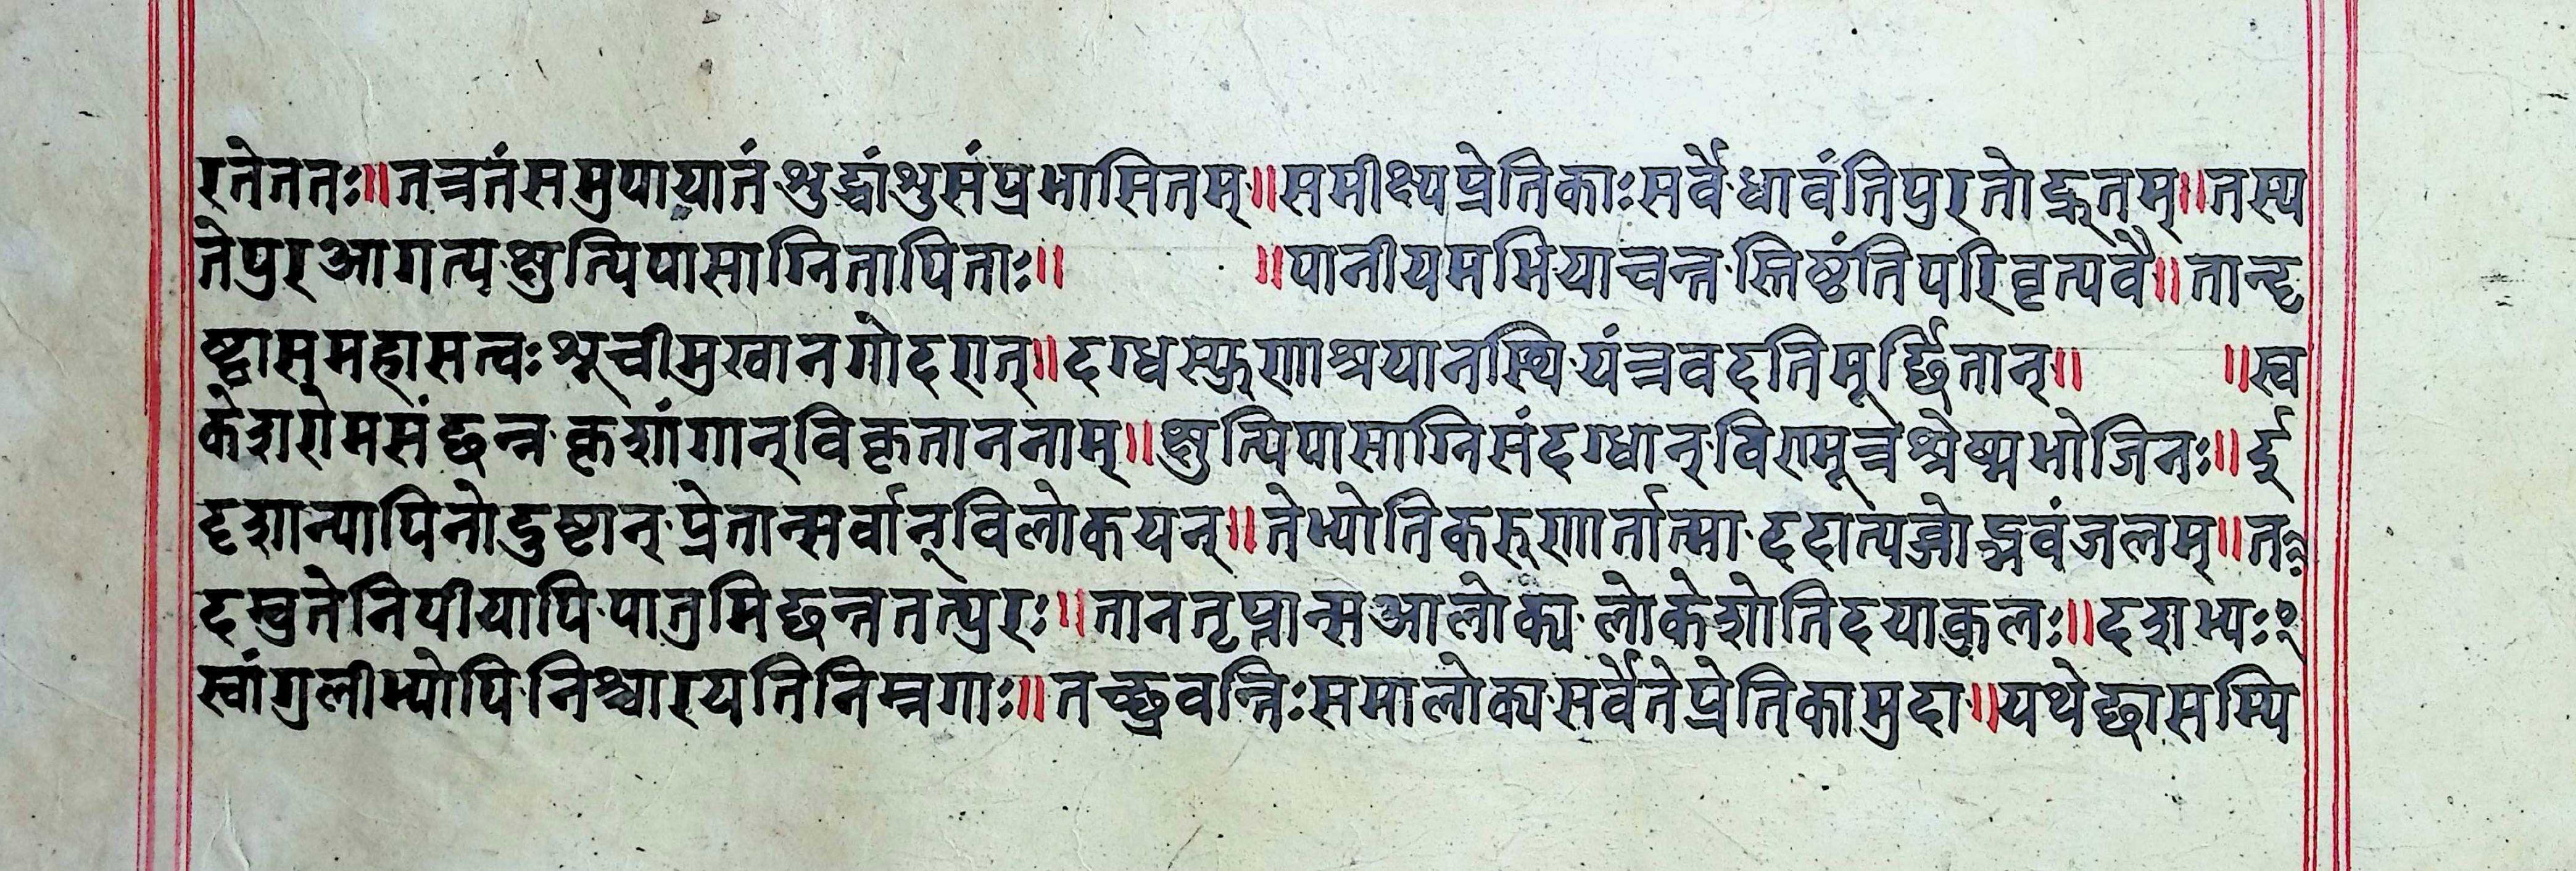 रतेततः॥तत्रतंसमुपायातंशुद्धांशुसंप्रभासितम्॥समीक्ष्यप्रेतिकाःसर्वेधावंतिपुरतोद्रुतम्॥तस्य
तेपुरआगत्यक्षुत्पिपासाग्नितापिताः॥ ॥पानीयमभियाचन्तस्तिष्ठंतिपरिवृत्यवै॥तान्दृ
ष्ट्वासुमहासत्वःशूचीमुखानगोदरात्॥दग्धस्फुरणाश्रयानस्थियंत्रवदतिमूर्छितान्॥ ॥स्व
केशरोमसंछन्नकृशांगान्विकृताननाम्॥क्षुत्पिपासाग्निसंदग्धान्विणमूत्रश्लेष्मभोजिनः॥र्दू
दृशान्पापिनोदुष्टान्प्रेतान्सर्वान्विलोकयन्॥तेभ्योतिकरुणार्तात्माददात्यब्जोद्भवंजलम्॥त
दम्बुतेनिपीयापिपातुमिछन्ततत्पुरः॥तानतृप्तान्सआलोक्यलोकेशोतिदयाकुलः॥दशभ्यः
स्वांगुलीभ्योपिनिश्चारयतिनिम्नगाः॥तच्छ्रुवन्तिःसमालोक्यसर्वेतेप्रेतिकामुदा॥यथेछासम्पि